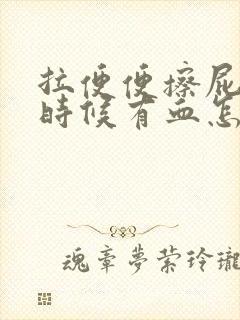 拉便便擦屁
時候有血怎
魂牵夢萦玲瓏